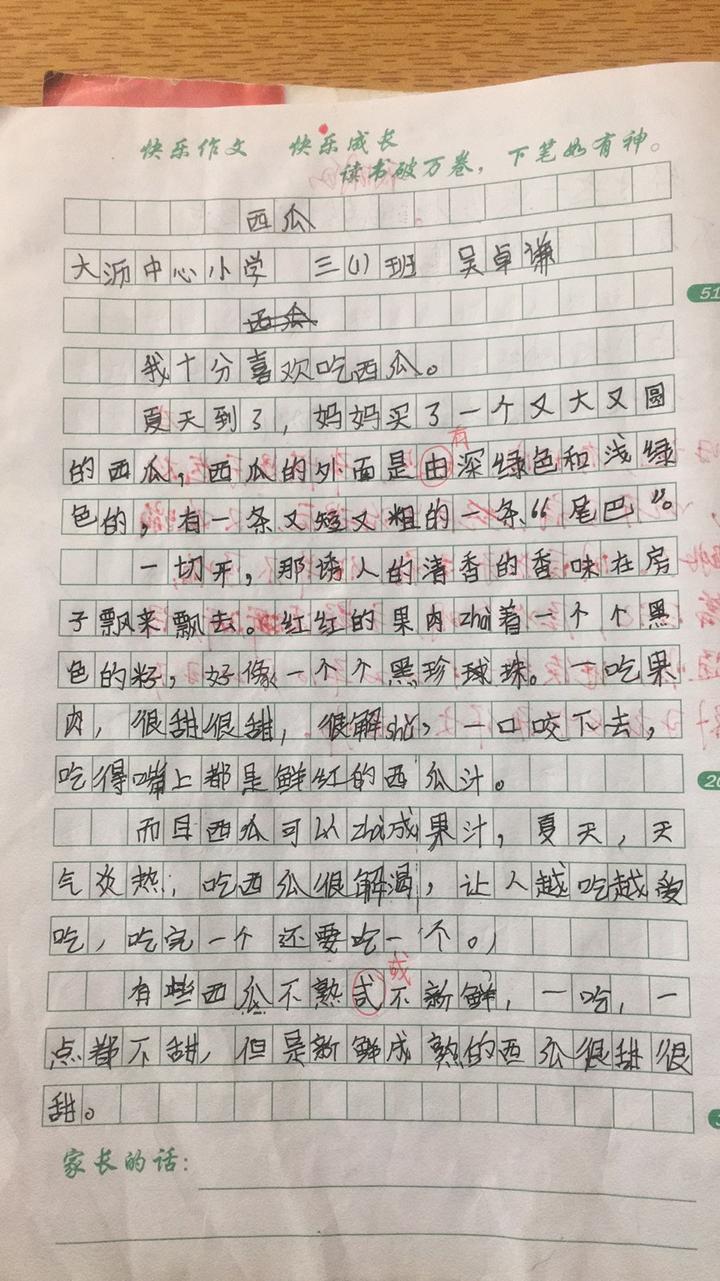 快乐作文 快乐成长
读书破万卷，下笔如有神。
西瓜
大沥中心小学 三(1)班 吴卓谦
西瓜
我十分喜欢吃西瓜。
夏天到了，妈妈买了一个又大又圆
有
的西瓜，西瓜的外面是由深绿色和浅绿
色的，有一条又短又粗的一条“尾巴”。
一切开，那诱人的清香的香味在房
子飘来飘去。红红的果肉zhāi着一个个黑
色的籽，好像一个个黑珍球珠。一吃果
肉，很甜很甜，很解，一口咬下去，
吃得嘴上都是鲜红的西瓜汁。
而且西瓜可以zhà成果汁，夏天，天
气炎热，吃西瓜很解渴，让人越吃越爱
吃，吃完一个还要吃一个。
或
有些西瓜不熟式不新鲜，一吃，一
点都不甜，但是新鲜成熟的西瓜很甜很
甜。
家长的话：
51